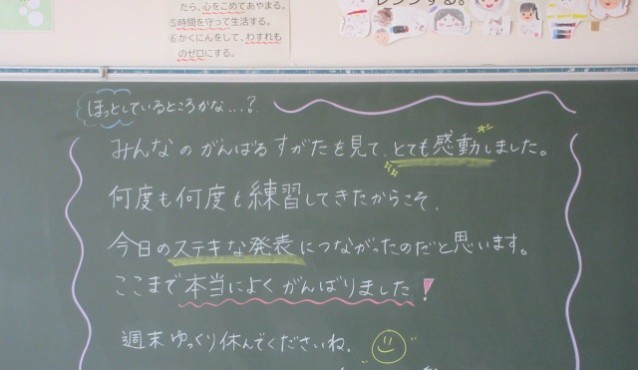 たら、心をこめてあやまる。
⑤時間を守って生活する。
⑥かくにんをして、わすれも
のゼロにする。
レンジする。
ほっとしているところかな…?
みんなのがんばるすがたを見て、とても感動しました。
何度も何度も練習してきたからこそ、
今日のステキな発表につながったのだと思います。
ここまで本当によくがんばりました!
週末ゆっくり休んでくださいね。